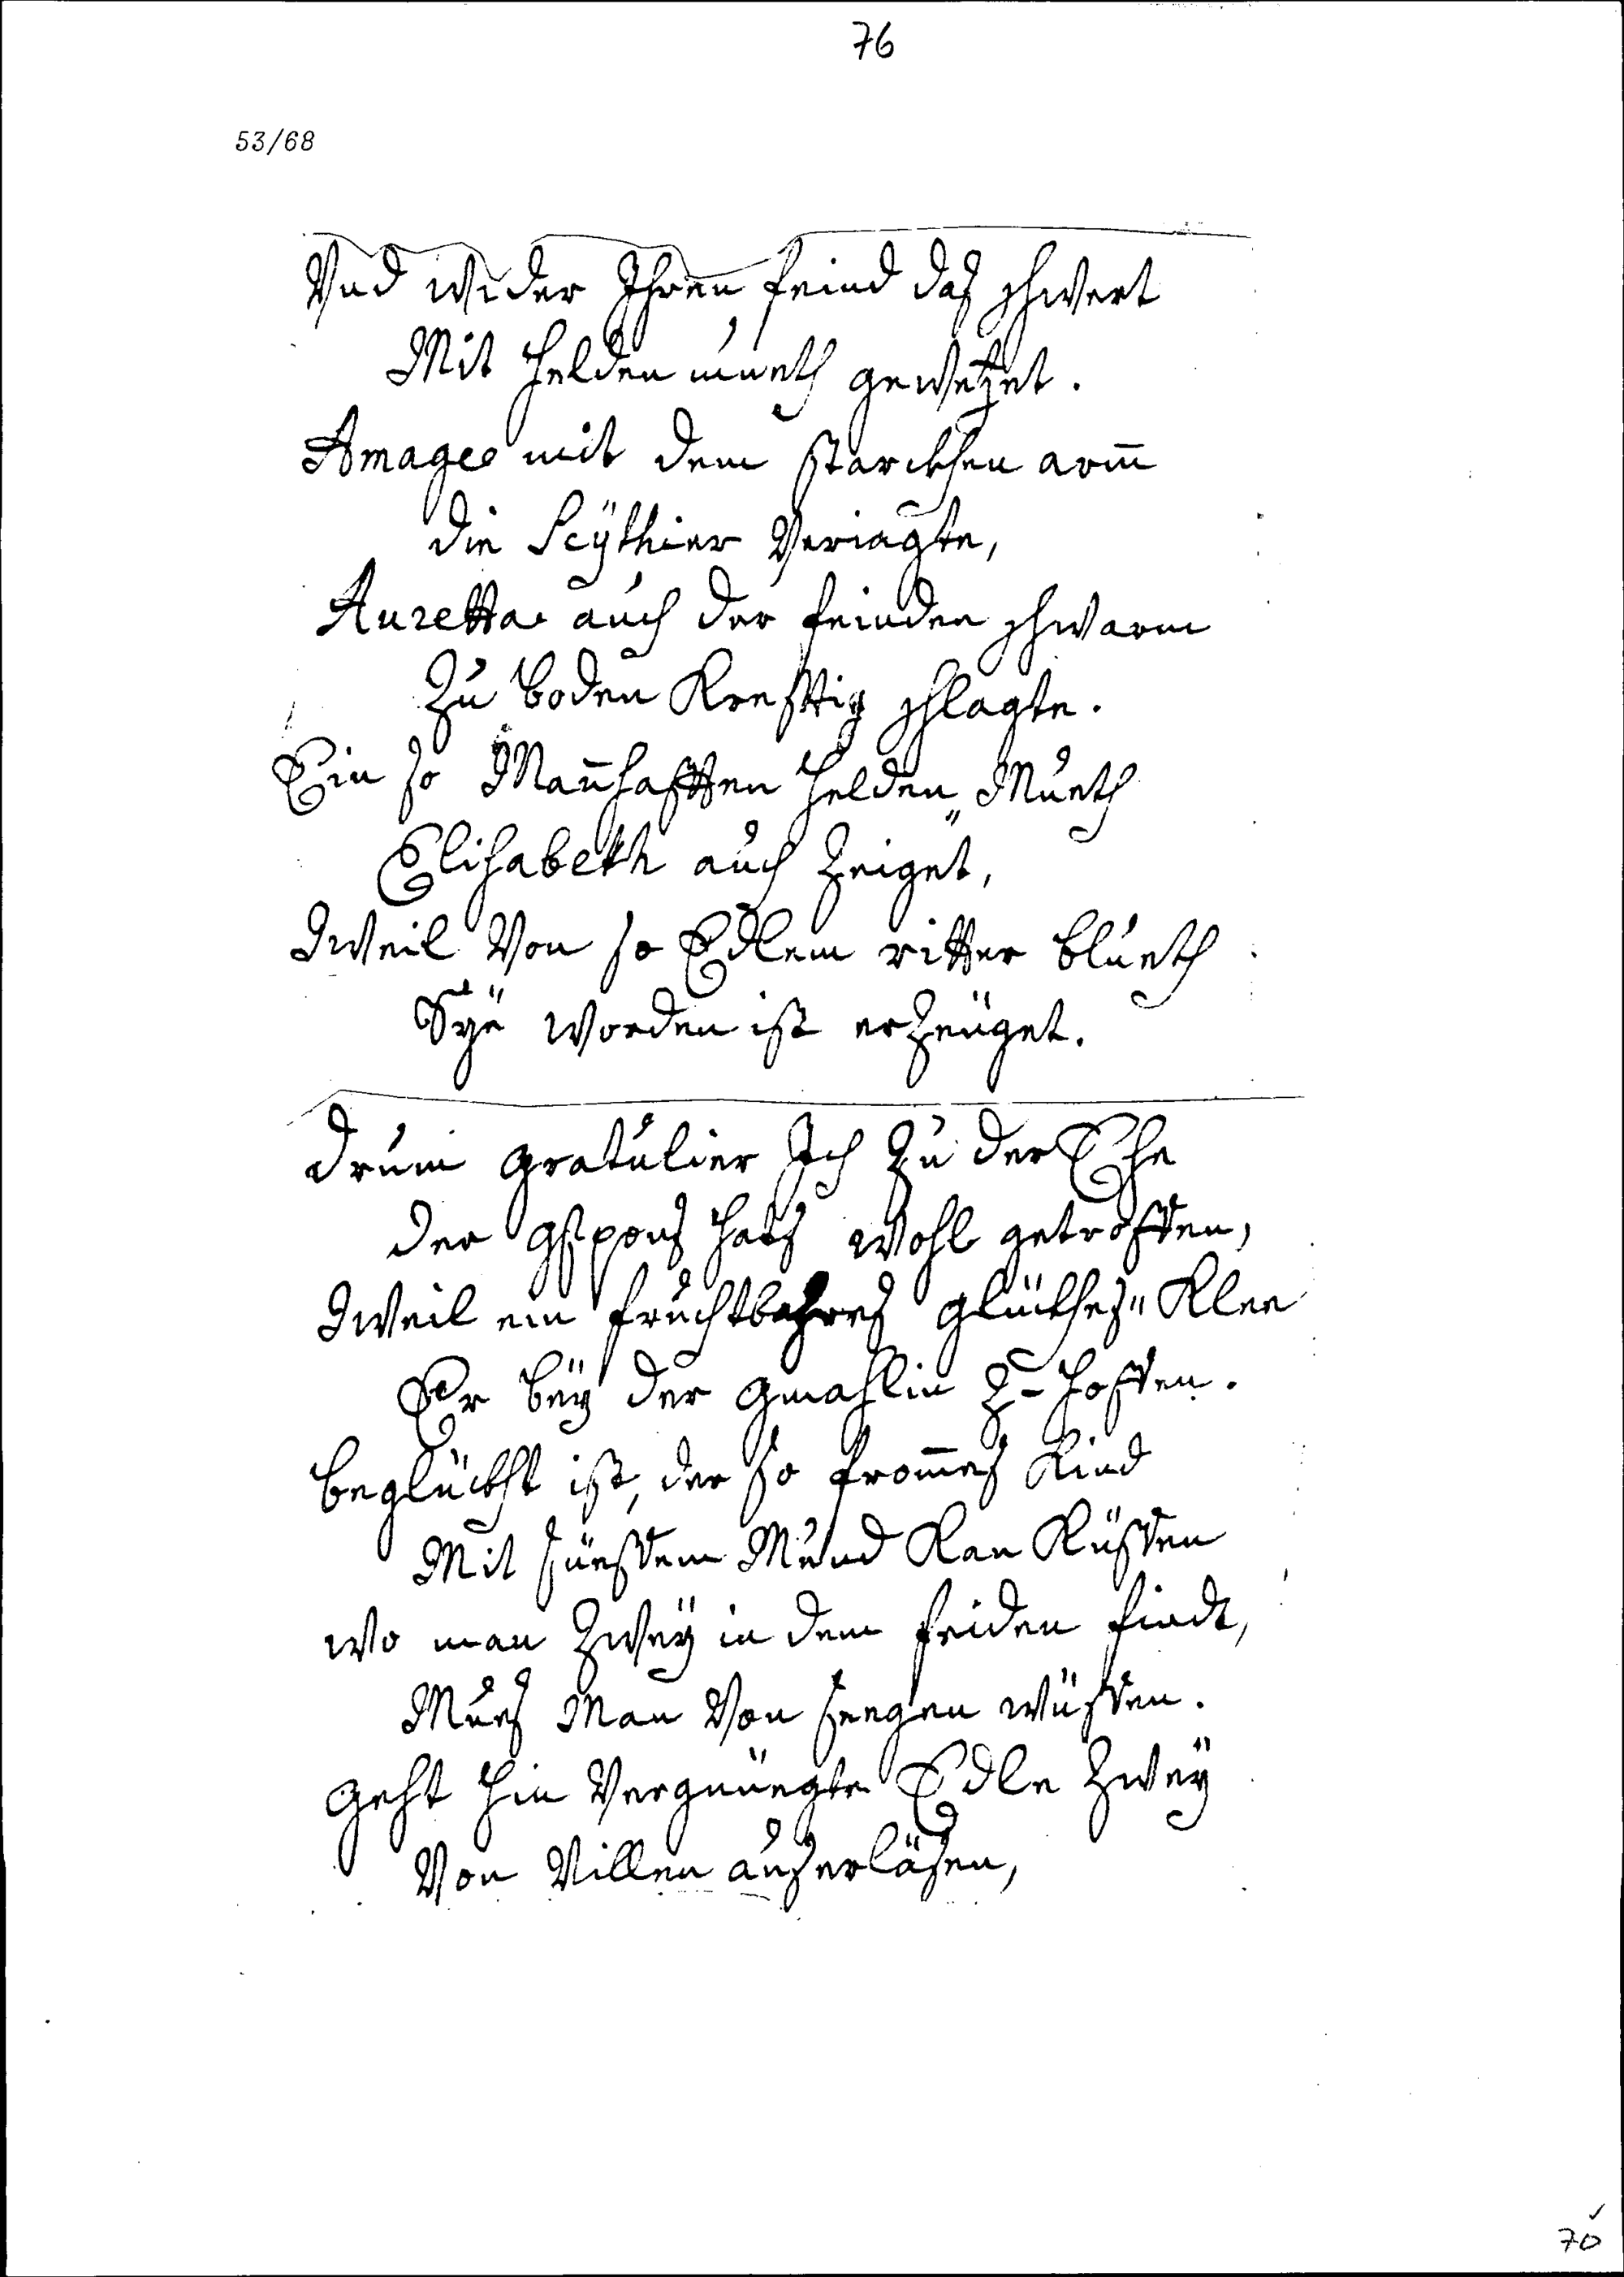 76
53/68
Vnd wider Ihren feind daß schwert
Mit helden mueth gewetzet.
Amage mit dem starckhen arm̄
die Scÿthier Veriagte,
Auretta auch der feinden schwarm
Zu boden Krefftig schlagte.
Ein so Man̄hafften helden„ Mueth
Elisabeth auch Zeiget,
Weil Von so Edlem ritter blueth
Syë worden ist erZeüget.
drum gratulier Ich Zu der Ehe
der gspons hats wohl getroffen,
Weil ein fruchtbahres glückhes„ Klee
Er beÿ der gmahlin Z- hoffen.
beglückht ist, der so from̄es Kind
Mit süessem Mund Kan Küssen
wo man Zweÿ in dem feiden findt,
Mues Man Von seegen wüssen.
geht hin Vergnüegte Edle Zweÿ
Von Villen außerläsen,
70